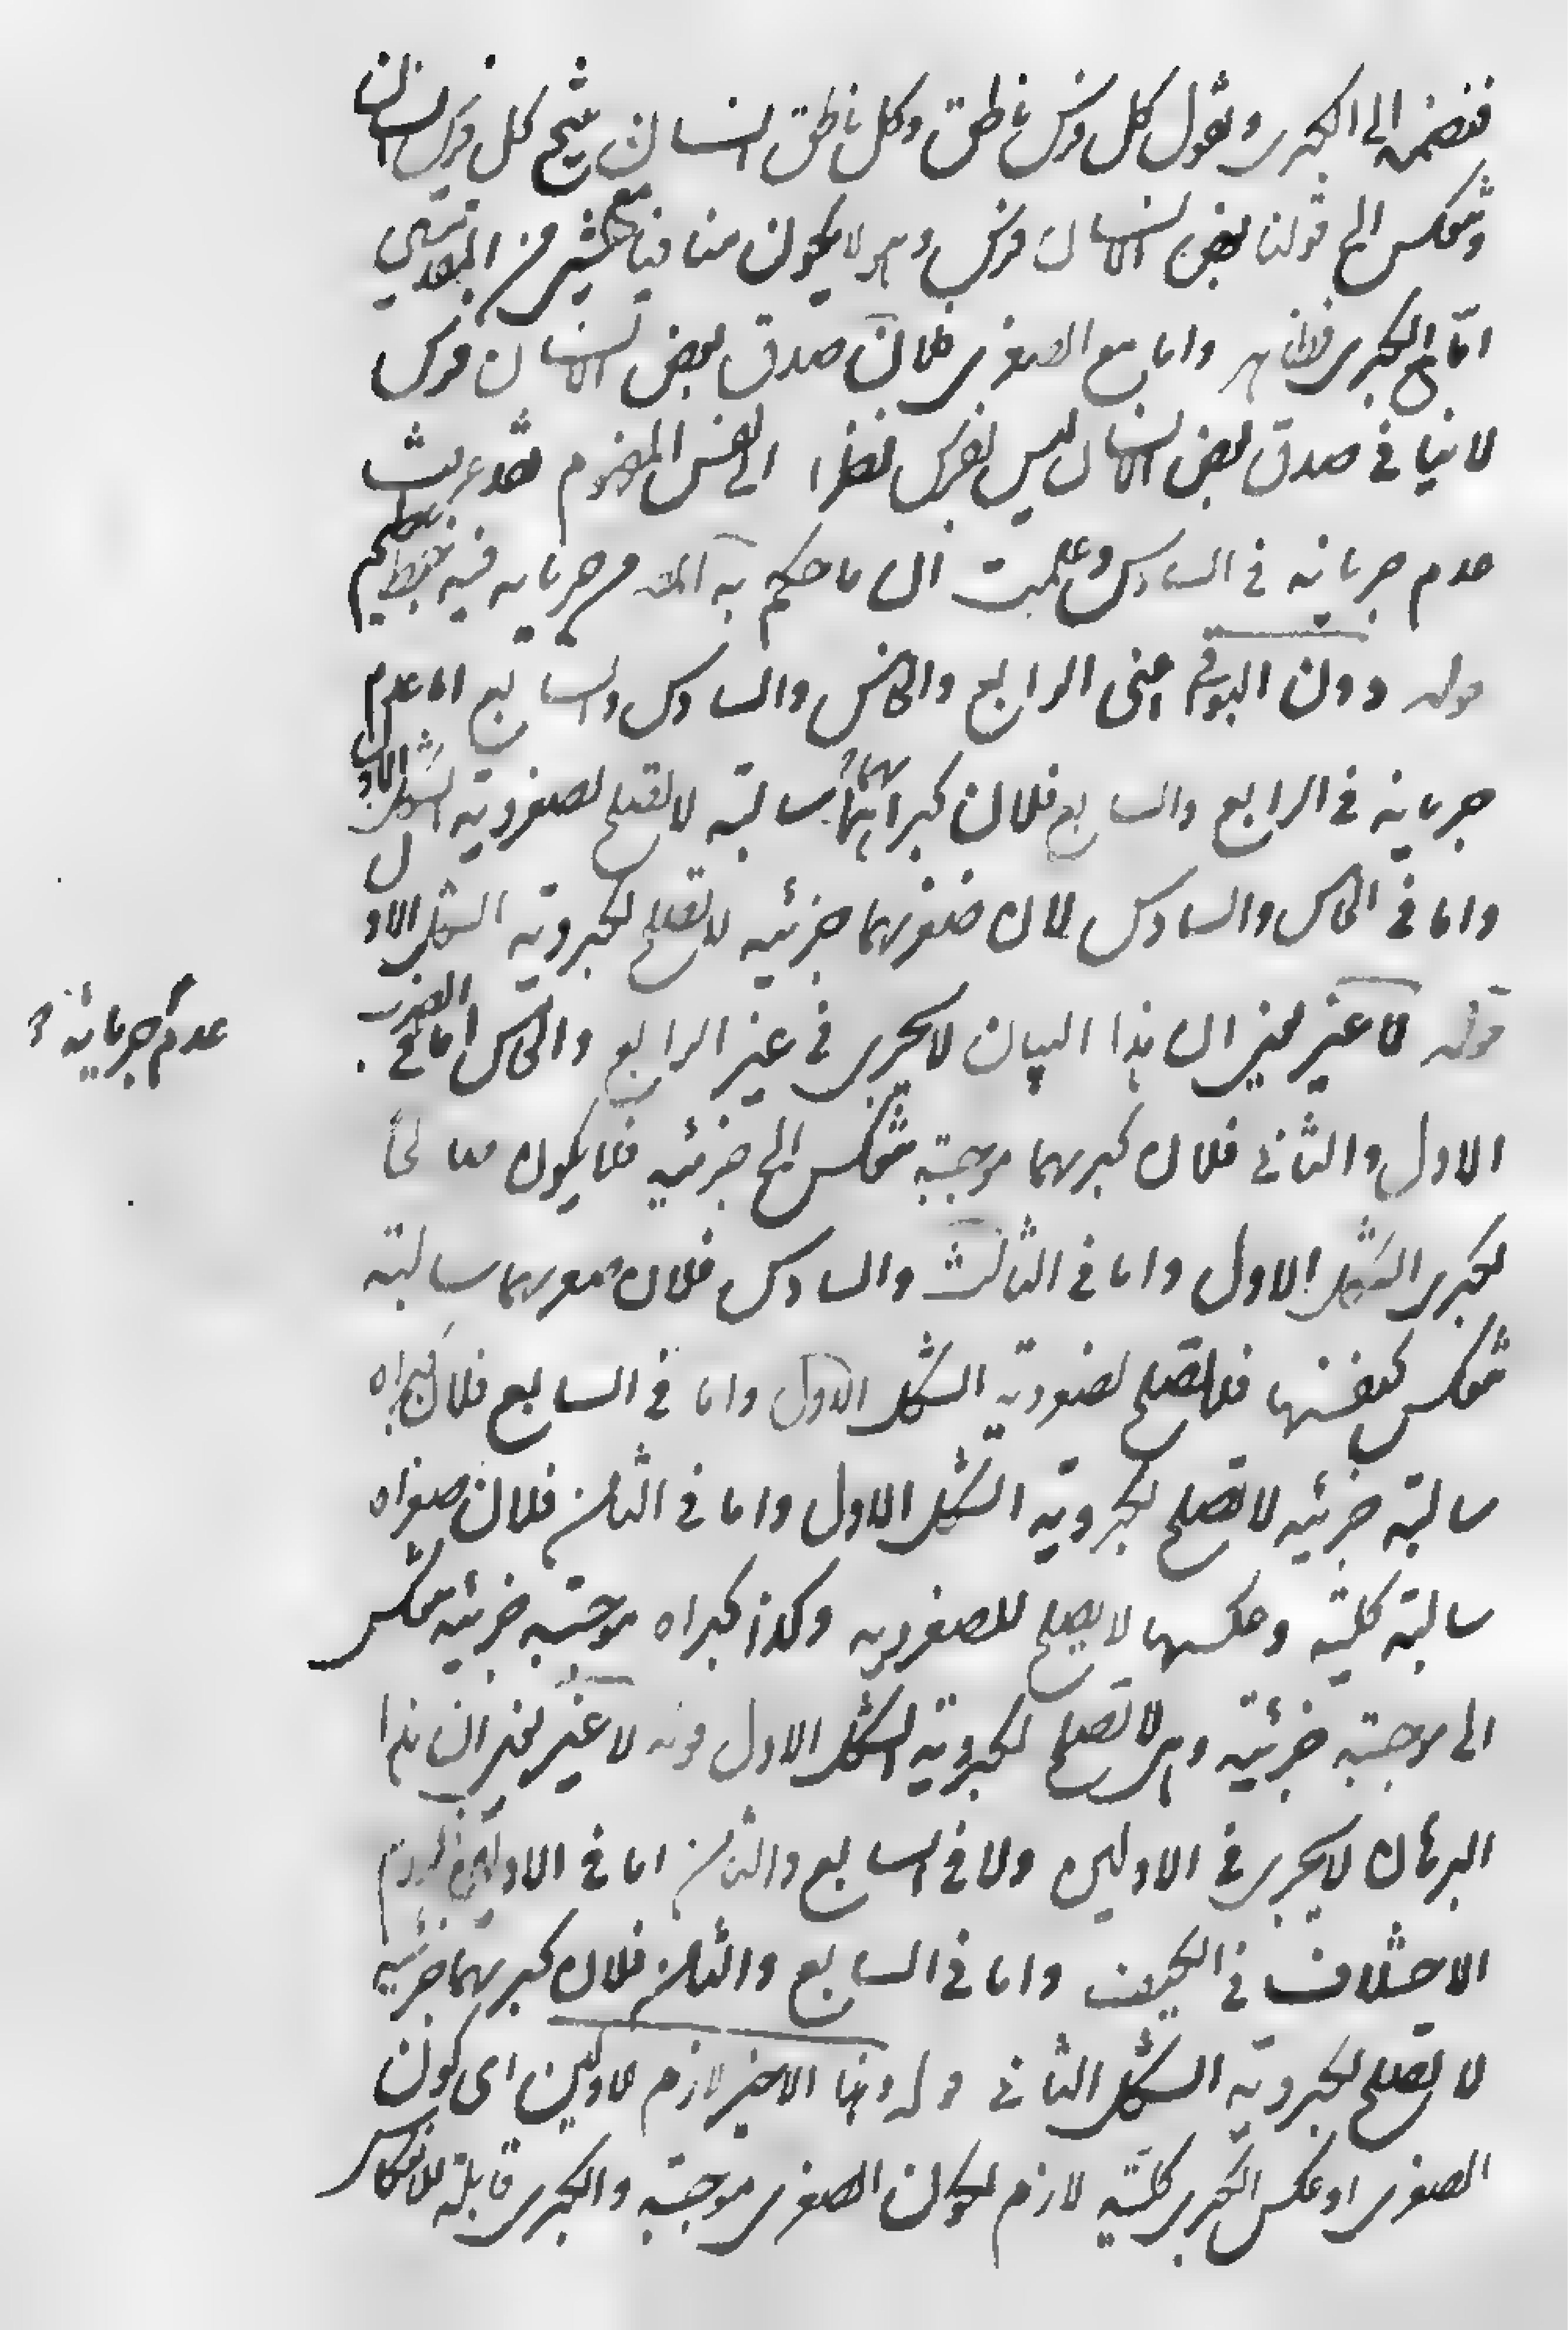 فنضمه الى الكبرى ونقول كل فرس ناطق وكل ناطق انسان ينتج كل فرس انسان
وتنعكس الى قولنا بعض الانسان فرس وهو لا يكون منافيا لشئ من المقدمتين
اما مع الكبرى فظاهر واما مع الصغرى فلان صدق بعض الانسان فرس
لا ينافي صدق بعض الانسان ليس بفرس نظرا الى نفس المفهوم فقد عرفت
عدم جريانه في السادس وعلمت ان ما حكم به المص من جريانه فيه خبط عظيم
قوله دون البواقي اعنى الرابع والخامس والسادس والسابع اما عدم
جريانه في الرابع والسابع فلان كبراهما سالبة لا تصلح لصغروية الشكل الاول
واما في الخامس والسادس فلان صغريهما جزئية لا تصلح لكبروية الشكل الاول
قوله لا غير يعني ان هذا البيان لا يجري في غير الرابع والخامس اما في الضرب
عدم جريانه
الاول والثاني فلان كبريهما موجبة تنعكس الى جزئية فلا يكون صالحا
لكبرى الشكل الاول واما في الثالث والسادس فلان صغريهما سالبة
تنعكس كنفسها فلا تصلح لصغروية الشكل الاول واما في السابع فلان كبراه
سالبة جزئية لا تصلح لكبروية الشكل الاول واما في الثامن فلان صغراه
سالبة كلية وعكسها لا يصلح للصغروية وكذا كبراه موجبة جزئية تنعكس
الى موجبة جزئية وهي لا تصلح لكبروية الشكل الاول قوله لا غير يعني ان هذا
البرهان لا يجري في الاولين ولا في السابع والثامن اما في الاولين فلعدم
الاختلاف في الكيف واما في السابع والثامن فلان كبريهما جزئية
لا تصلح لكبروية الشكل الثاني قوله وهذا الاخير لازم للاولين اي كون
الصغرى او عكس الكبرى كلية لازم لكون الصغرى موجبة والكبرى قابلة للانعكاس